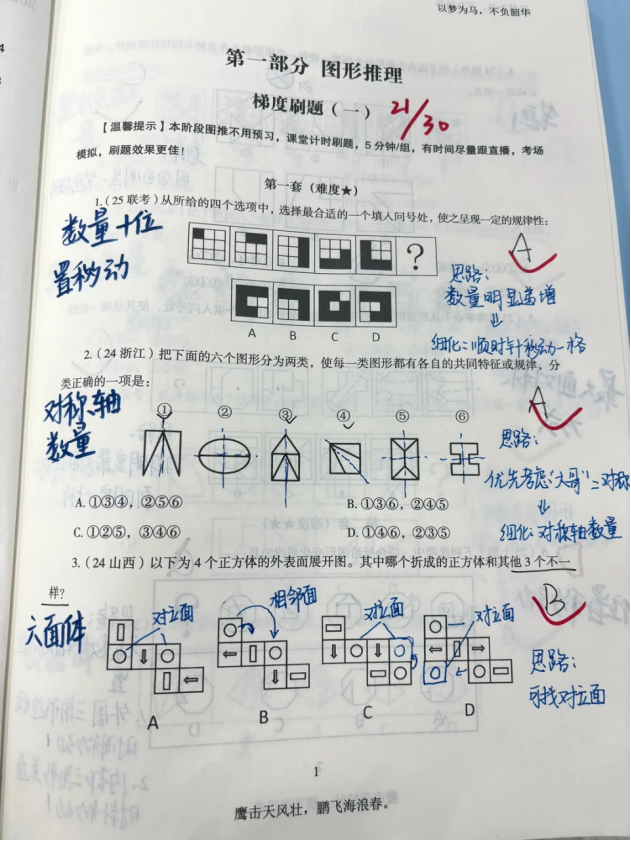 以梦为马，不负韶华
第一部分 图形推理
梯度刷题（一） 21/30
【温馨提示】本阶段图推不用预习，课堂计时刷题，5分钟/组，有时间尽量跟直播，考场
模拟，刷题效果更佳！
第一套（难度★）
1.(25联考)从所给的四个选项中，选择最合适的一个填入问号处，使之呈现一定的规律性：
数量+位
置移动
?
A B C D
A
思路：
数量明显递增
↓
细化：顺时针移动一格
2.(24浙江)把下面的六个图形分为两类，使每一类图形都有各自的共同特征或规律，分
类正确的一项是：
对称轴
数量
① ② ③ ④ ⑤ ⑥
A.①③④，②⑤⑥ B.①③⑥，②④⑤
C.①②⑤，③④⑥ D.①④⑥，②③⑤
A
思路：
优先考虑"大哥"：对称
↓
细化：对称轴数量
3.(24山西)以下为4个正方体的外表面展开图。其中哪个折成的正方体和其他3个不一
样?
六面体
对立面 相邻面 对立面 对立面
A B C D
B
思路：
可找对立面
1
鹰击天风壮，鹏飞海浪春。